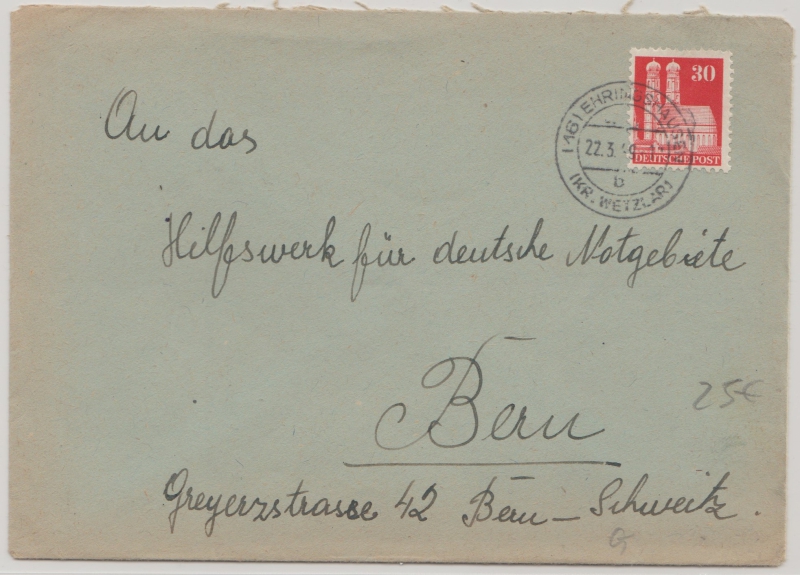 30
DEUTSCHE POST
(16) EHRINGSHAUSEN
22.3.49
b
(KR. WETZLAR)
An das
Hilfswerk für deutsche Notgebiete
Bern
Greyerzstrasse 42 Bern – Schweitz.
25€
G